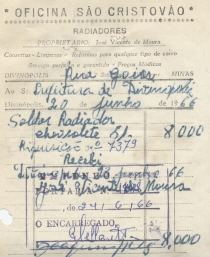 " OFICINA SÃO CRISTOVÃO "
RADIADORES
PROPRIETARIO: José Vicente de Moura
Consertos - Limpezas - Reformas para qualquer tipo de carro
Serviço perfeito e garantido - Preços Módicos
DIVINÓPOLIS Rua Goias MINAS
Prefeitura de Divinopolis
Divinópolis, 20 de junho de 1966
Soldar Radiador
chevrolete 8,000
Riquisição nº 7379
Recebi
junho 66
José Vicente de Moura
, de 24/6/66
O ENCARREGADO,
8,000